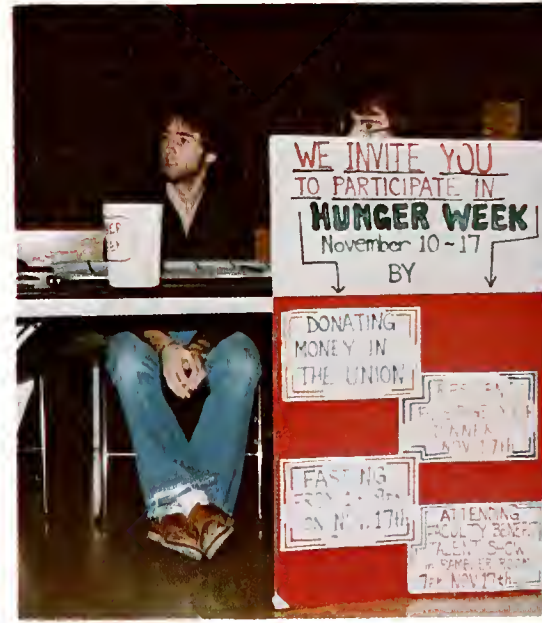 WE INVITE YOU
TO PARTICIPATE IN
HUNGER WEEK
November 10-17
BY
DONATING
MONEY IN
THE UNION
DINNER
NOV 17th
FASTING
ON NOV. 17th
ATTENDING
FACULTY BENEFIT
TALENT SHOW
in RAMBLER ROOM
7PM NOV 17th